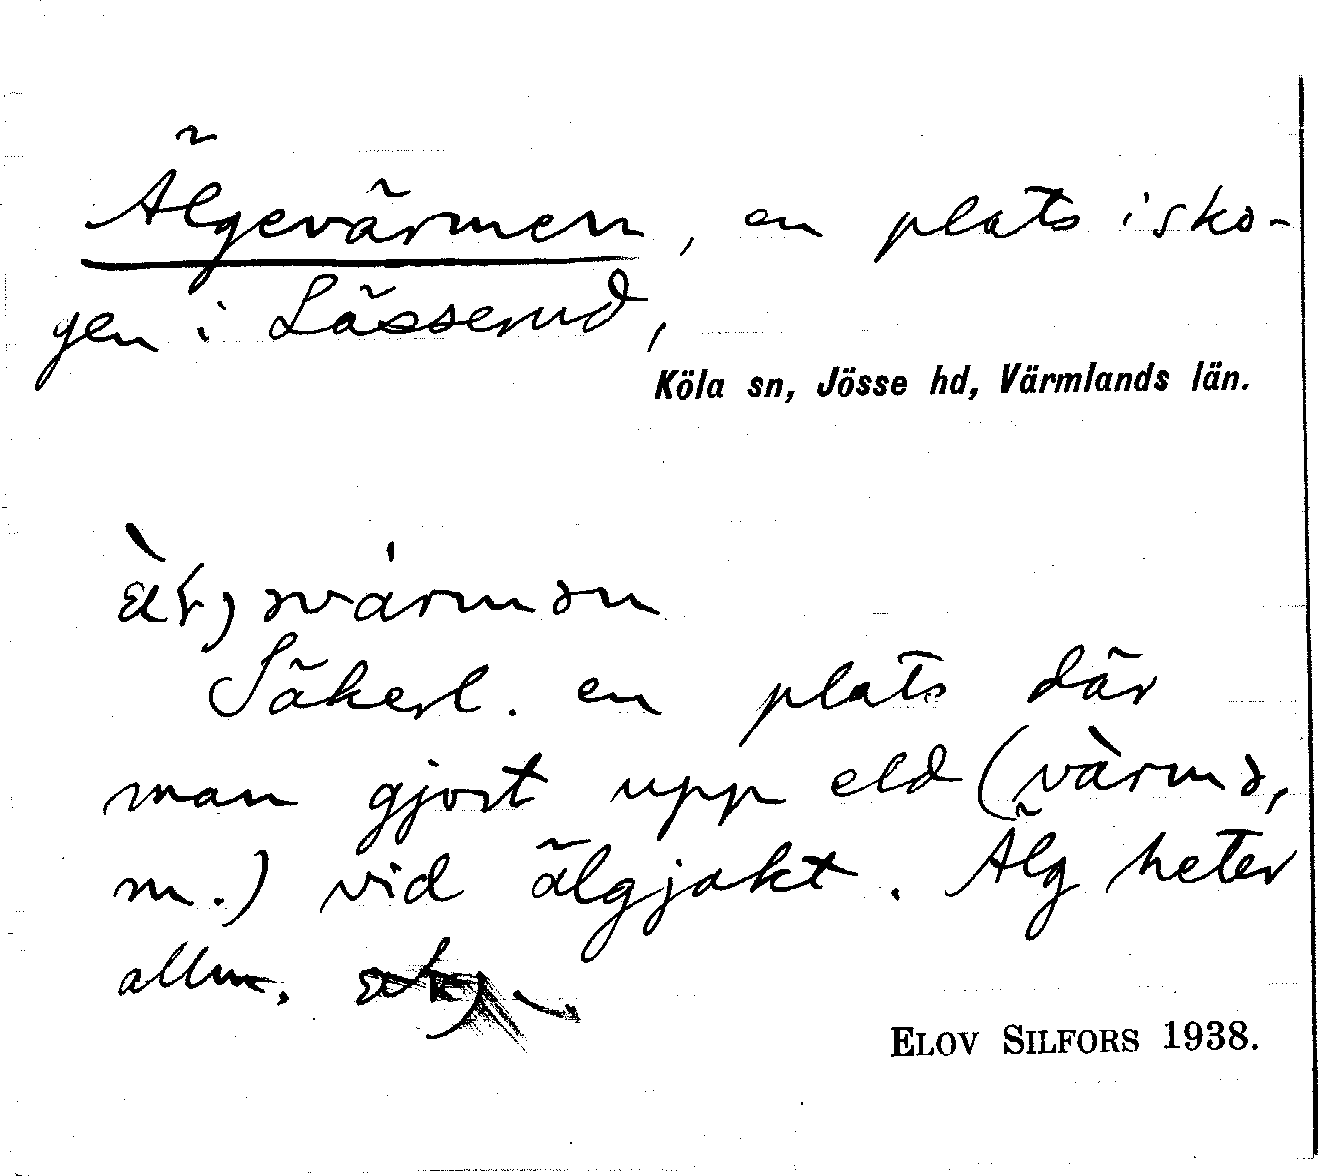 Älgevärmen, en plats i sko-
gen i Lässerud,
Köla sn, Jösse hd, Värmlands län.
Säkerl. en plats där
man gjort upp eld (värmə,
m.) vid älgjakt. Älg heter
allm.
ELOV SILFORS 1938.